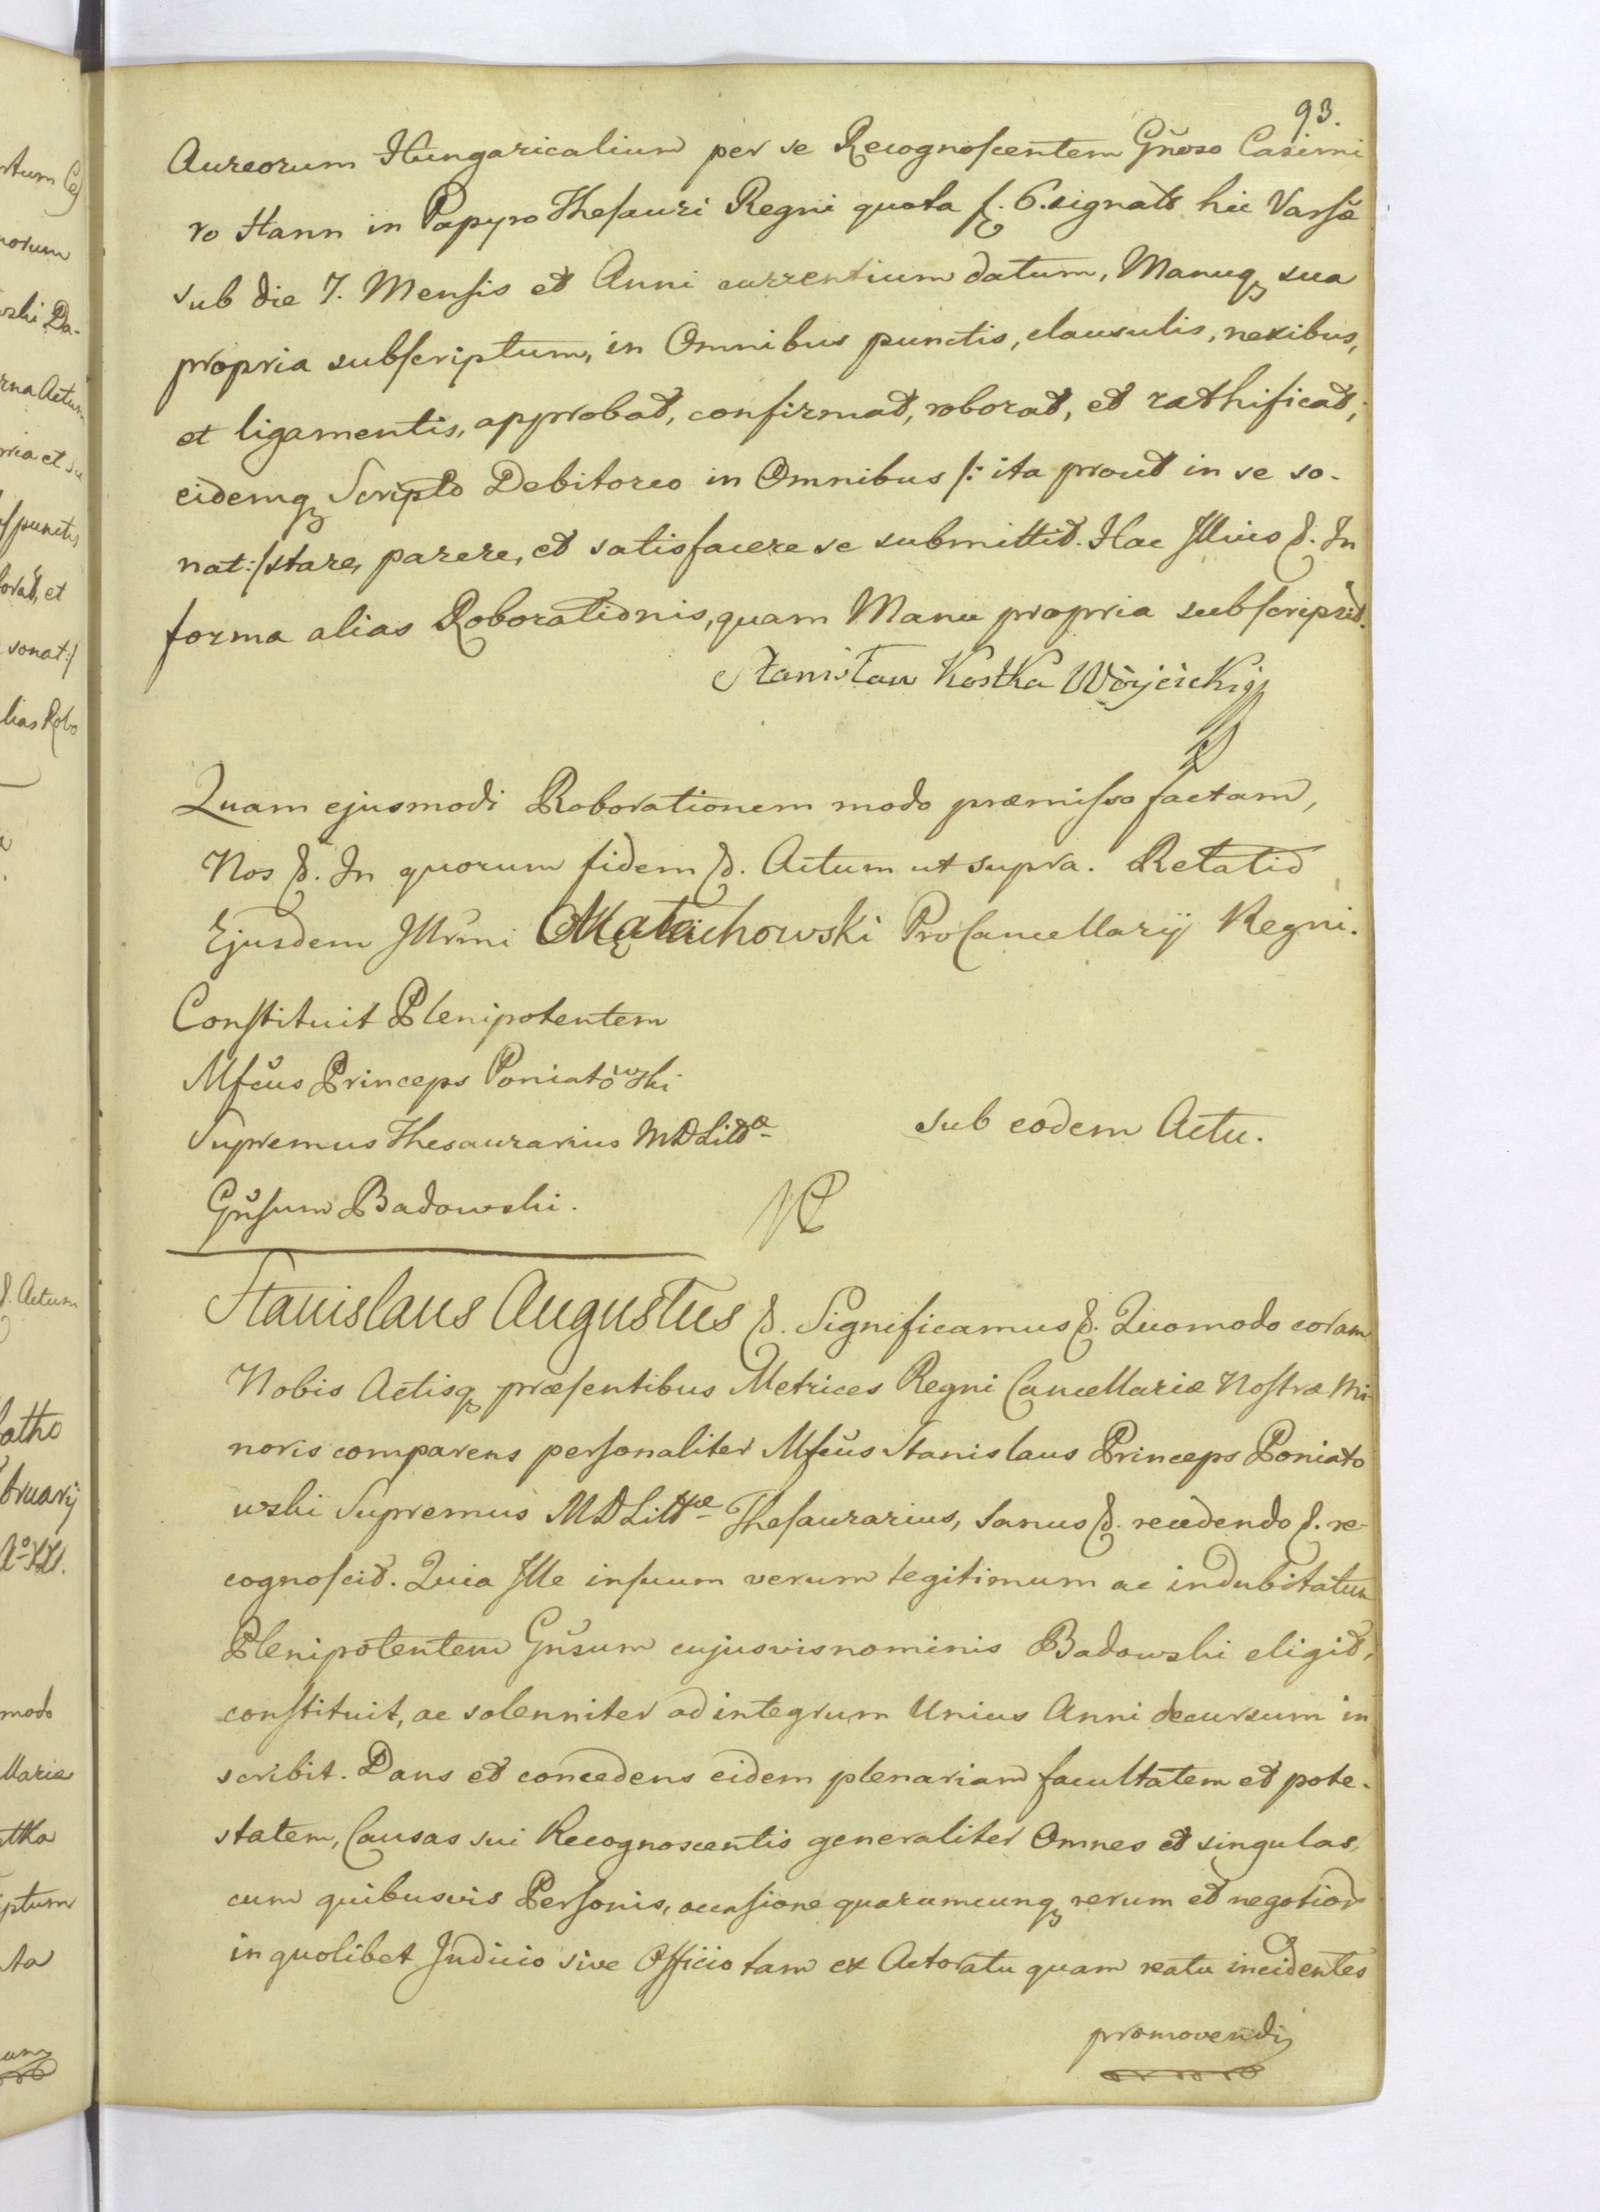 93.
Aureorum Hungaricalium per se Recognoscentem Gñoso Casimi
ro Hann in Papyro Thesauri Regni quota f. 6. signato hic Varsæ
sub die 7. Mensis et Anni currentium datum, Manuq sua
propria subscriptum, in Omnibus punctis, clausulis, nexibus,
et ligamentis, approbat, confirmat, roborat, et rathificat,
eidemq Scripto Debitoreo in Omnibus /: ita prout in se so-
nat:/ stare, parere, et satisfacere se submittit. Hac Illius &. In
forma alias Roborationis, quam Manu propria subscripsit.
Stanisław Kostka Wòyćicki
Quam ejusmodi Roborationem modo præmisso factam,
Nos &. In quorum fidem &. Actum ut supra. Relatio
Ejusdem Illrmi Małachowski ProCancellarij Regni.
Constituit Plenipotentem
Mfcus Princeps Poniatowski
Supremus Thesaurarius MDLittæ
sub eodem Actu.
Gñsum Badowski.
Stanislaus Augustus &. Significamus &. Quomodo coram
Nobis Actisq præsentibus Metrices Regni Cancellariæ Nostræ Mi-
noris comparens personaliter Mfcus Stanislaus Princeps Poniato
wski Supremus MDLittæ Thesaurarius, sanus &. recedendo &. re-
cognoscit. Quia Ille in suum verum legitimum ac indubitatum
Plenipotentem Gñsum cujusvis nominis Badowski eligit,
constituit, ac solenniter ad integrum Unius Anni decursum in
scribit. Dans et concedens eidem plenariam facultatem et pote-
statem, Causas sui Recognoscentis generaliter Omnes et singulas,
cum quibusvis Personis, occasione quarumcunq rerum et negotior
in quolibet Judicio sive Officio tam ex Actoratu quam reatu incidentes
promovendi